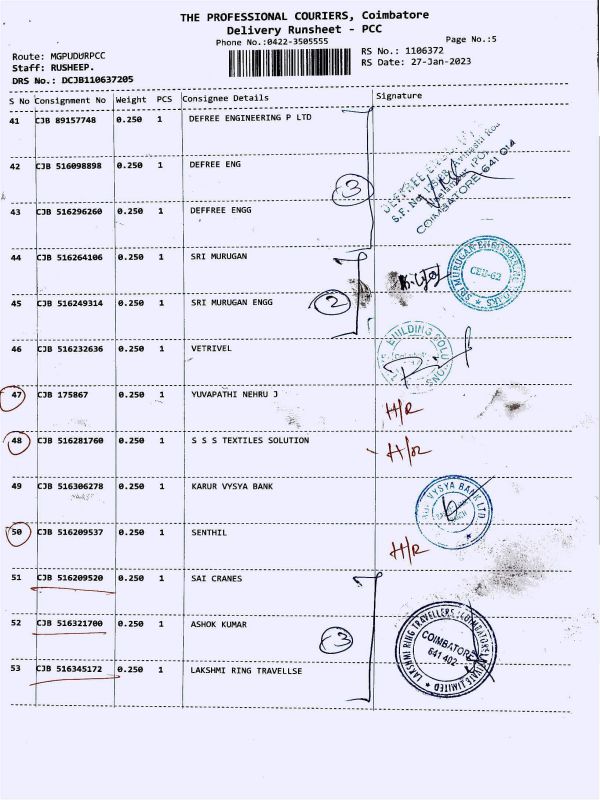 THE PROFESSIONAL COURIERS, Coimbatore
Delivery Runsheet - PCC
Phone No.:0422-3505555
Page No.:5
Route: MGPUDURPCC
RS No.: 1106372
Staff: RUSHEEP.
RS Date: 27-Jan-2023
DRS No.: DCJB110637205
S No Consignment No Weight PCS Consignee Details Signature
41 CJB 89157748 0.250 1 DEFREE ENGINEERING P LTD
42 CJB 516098898 0.250 1 DEFREE ENG
3
COIMBATORE-641 014
43 CJB 516296260 0.250 1 DEFFREE ENGG
44 CJB 516264106 0.250 1 SRI MURUGAN
SRI MURUGAN
CEU-62
45 CJB 516249314 0.250 1 SRI MURUGAN ENGG
2
46 CJB 516232636 0.250 1 VETRIVEL
BUILDING
47 CJB 175867 0.250 1 YUVAPATHI NEHRU J
H/R
48 CJB 516281760 0.250 1 S S S TEXTILES SOLUTION
H/R
49 CJB 516306278 0.250 1 KARUR VYSYA BANK
VYSYA BANK LTD.
50 CJB 516209537 0.250 1 SENTHIL
H/R
51 CJB 516209520 0.250 1 SAI CRANES
52 CJB 516321700 0.250 1 ASHOK KUMAR
3
LAKSHMI RING TRAVELLERS (COIMBATORE) PRIVATE LIMITED
COIMBATORE
641 402
53 CJB 516345172 0.250 1 LAKSHMI RING TRAVELLSE